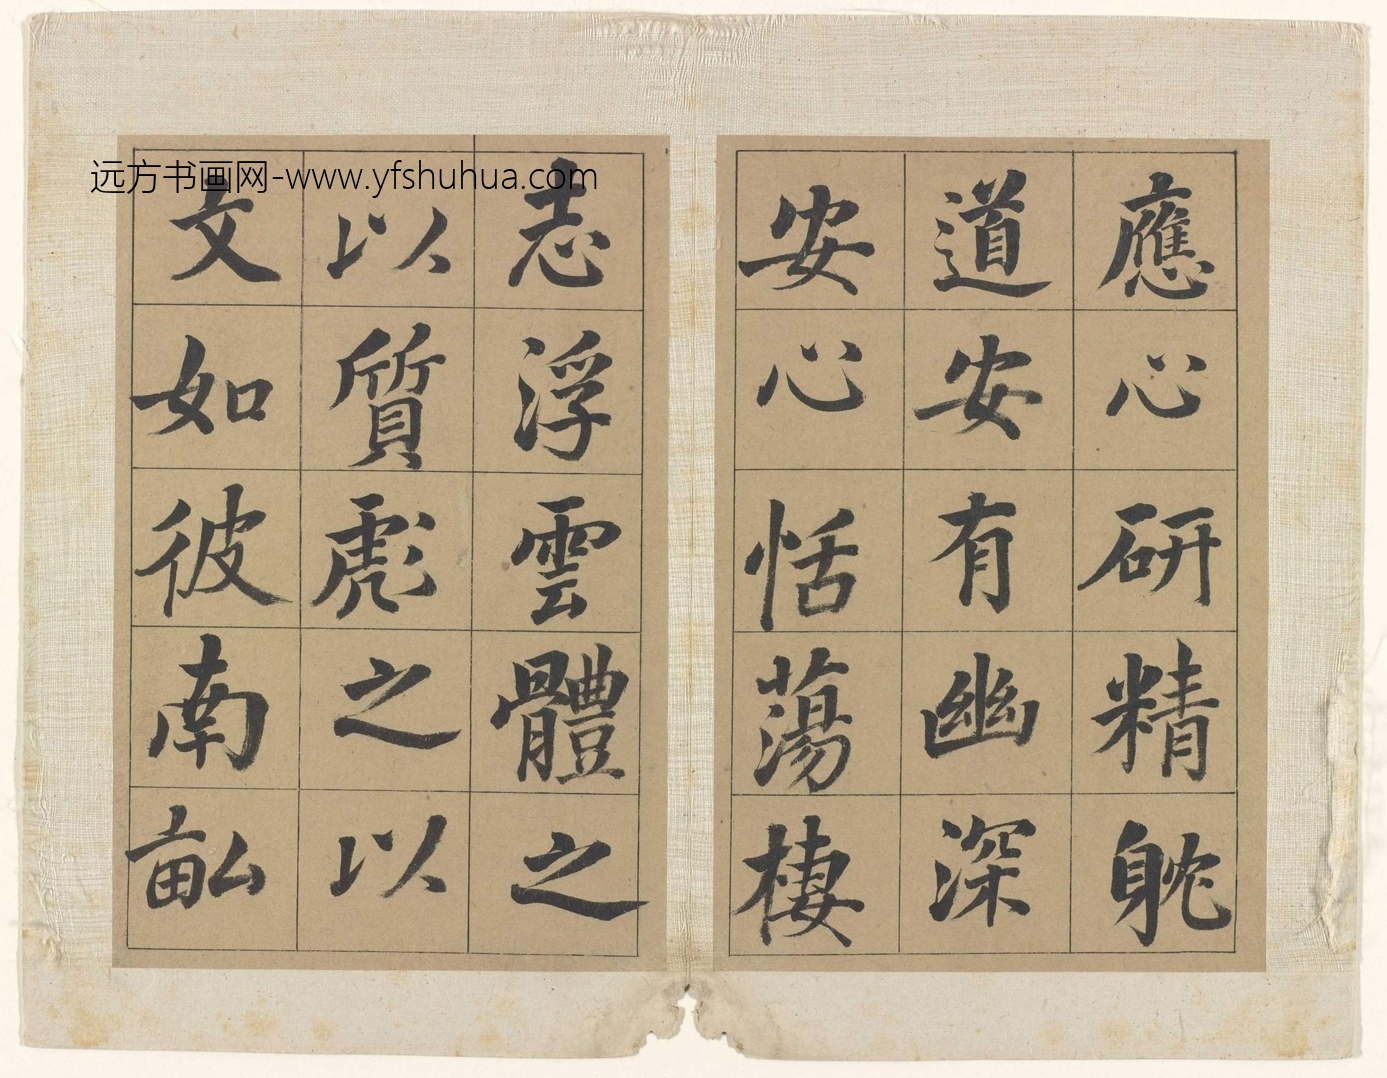 远方书画网-www.yfshuhua.com
應心研精躭
道安有幽深
安心恬蕩棲
志浮雲體之
以質彪之以
文如彼南畝